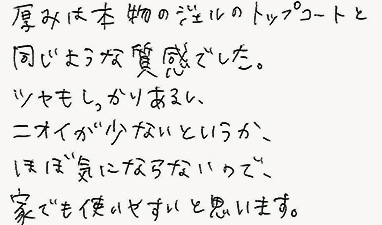 厚みは本物のジェルのトップコートと
同じような質感でした。
ツヤもしっかりあるし、
ニオイが少ないというか、
ほぼ気にならないので、
家でも使いやすいと思います。